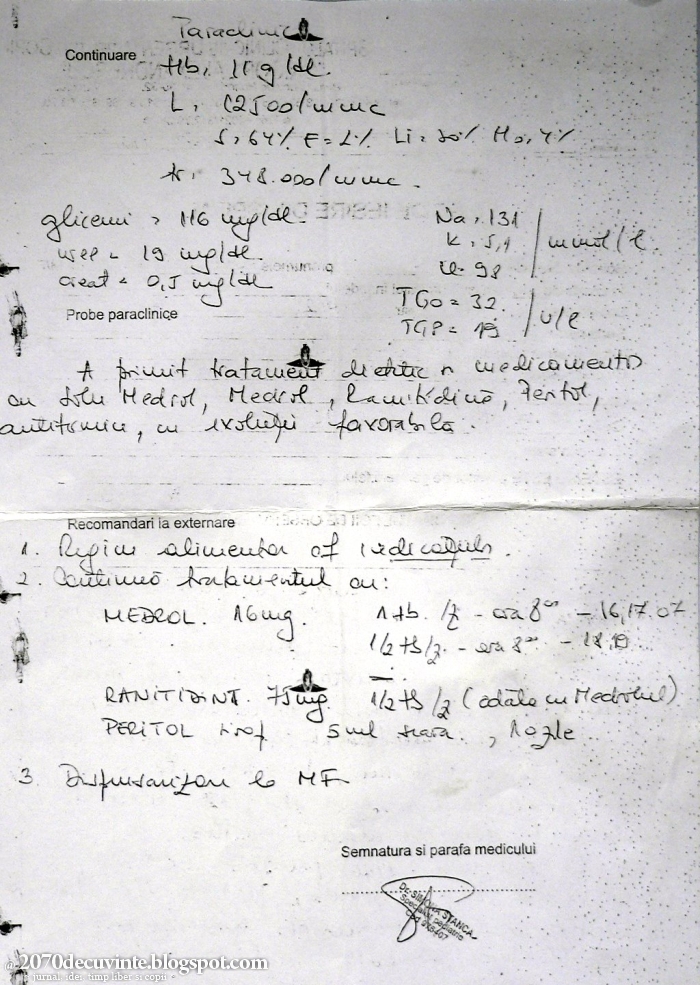 Paraclinic
Continuare
Hb. 11 g/dl.
L. 12500/mmc
S. 64% E = 2% Li = 30% Mo. 4%
tr. 348.000/mmc.
glicemi = 116 mg/dl.
uree = 19 mg/dl.
creat = 0,5 mg/dl
Na. 131
K. 5,1 mmol/l.
Cl. 98
TGO = 32
TGP = 19 u/l
Probe paraclinice
A primit tratament dietetic si medicamentos
cu Solu Medrol, Medrol, Ranitidină, Peritol,
antitermice, cu evoluție favorabilă.
Recomandari la externare
1. Regim alimentar cf indicațiilor.
2. Continuă tratamentul cu:
MEDROL. 16mg. 1 tb. /zi - ora 8⁰⁰ - 16,17.07
1/2 tb/zi - ora 8⁰⁰ - 18.19
RANITIDINA 75mg. 1/2 tb /zi (odata cu Medrolul)
PERITOL sirop 5ml seara, 10zile
3. Dispensarizare la MF
Semnatura si parafa medicului
Dr. SIMONA STANCA
Specialist pediatrie
2070decuvinte.blogspot.com
jurnal, idei, timp liber si copii